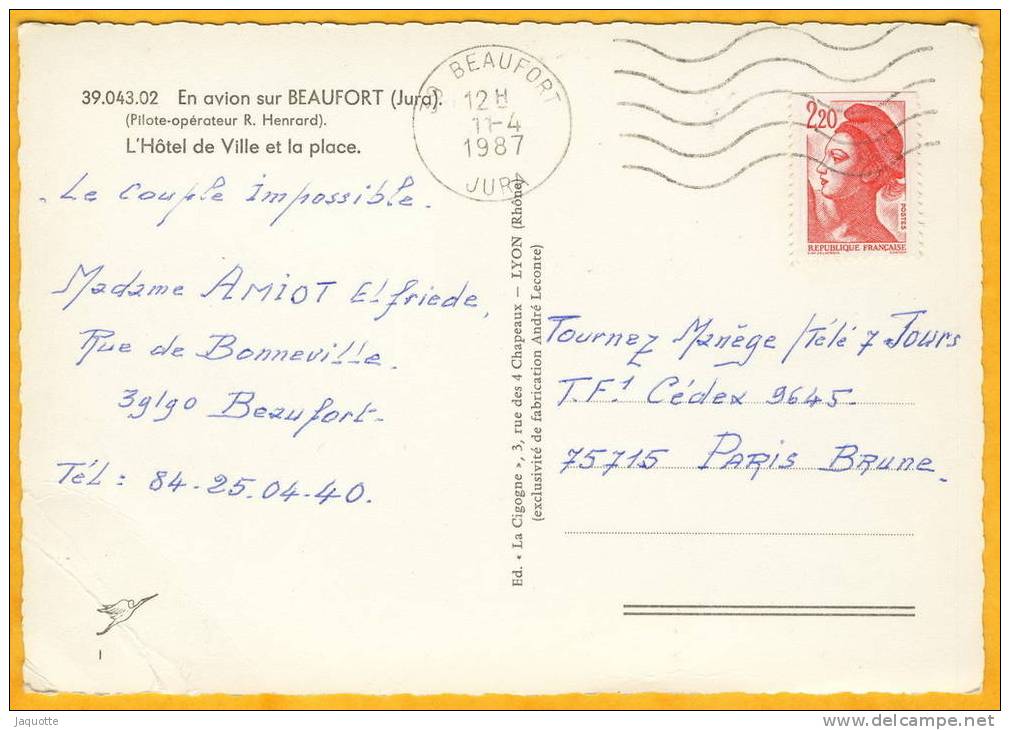 39.043.02 En avion sur BEAUFORT (Jura).
(Pilote-opérateur R. Henrard).
L'Hôtel de Ville et la place.
39 BEAUFORT
12 H
11-4
1987
JURA
2,20
POSTES
REPUBLIQUE FRANÇAISE
Le Couple Impossible.
Madame AMIOT Elfriede,
Rue de Bonneville.
39190 Beaufort.
Tél : 84.25.04.40.
Ed. « La Cigogne », 3, rue des 4 Chapeaux — LYON (Rhône)
(exclusivité de fabrication André Leconte)
Tournez Manège / Télé 7 Jours
T.F.1 Cédex 9645.
75715 PARIS BRUNE.
I
Jaquotte
www.delcampe.net